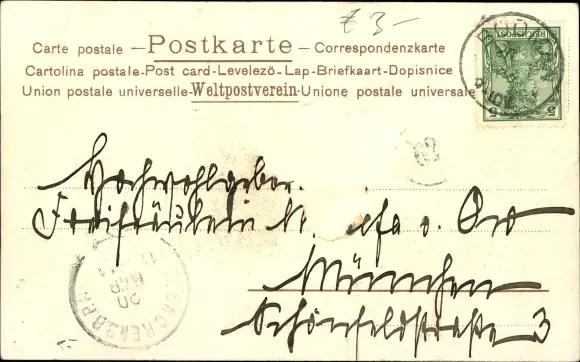 € 3-
Carte postale – Postkarte – Correspondenzkarte
Cartolina postale-Post card-Levelezö-Lap-Briefkaart-Dopisnice
Union postale universelle-Weltpostverein-Unione postale universale
REICHSPOST
5 5
Hochwohlgebor.
Freifräulein v.
München
Schönfeldstraße 3
62
20
MAR